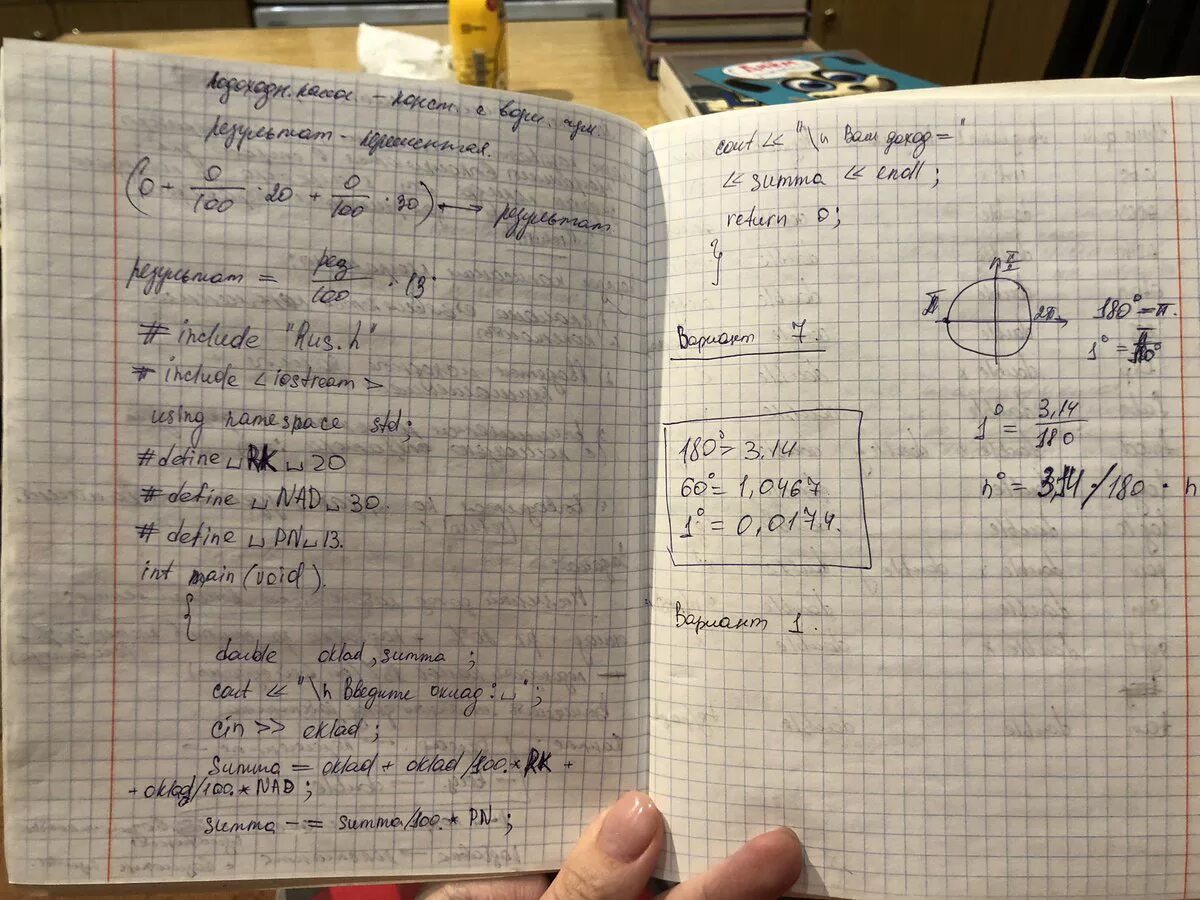 подоходн. налог. - конст.
результат - переменная.
(О + О/100 · 20 + О/100 · 30) ⟷ результат
результат = рез/100 · 13
# include "Rus.h"
# include <iostream>
using namespace std;
# define ␣ RK ␣ 20
# define ␣ NAD ␣ 30.
# define ␣ PN ␣ 13.
int main (void).
{
double oklad, summa ;
cout << "\n Введите оклад: ␣" ;
cin >> oklad ;
summa = oklad + oklad /100. * RK +
+ oklad/100. * NAD ;
summa -= summa/100. * PN ;
cout << "\n Ваш доход = "
<< summa << endl ;
return 0;
}
Вариант 7.
180° = 3.14
60° = 1,0467
1° = 0,0174.
π/2
π
2π
180° = π.
1° = π/180°
1° = 3,14/180
n° = 3,14/180 · n
Вариант 1.